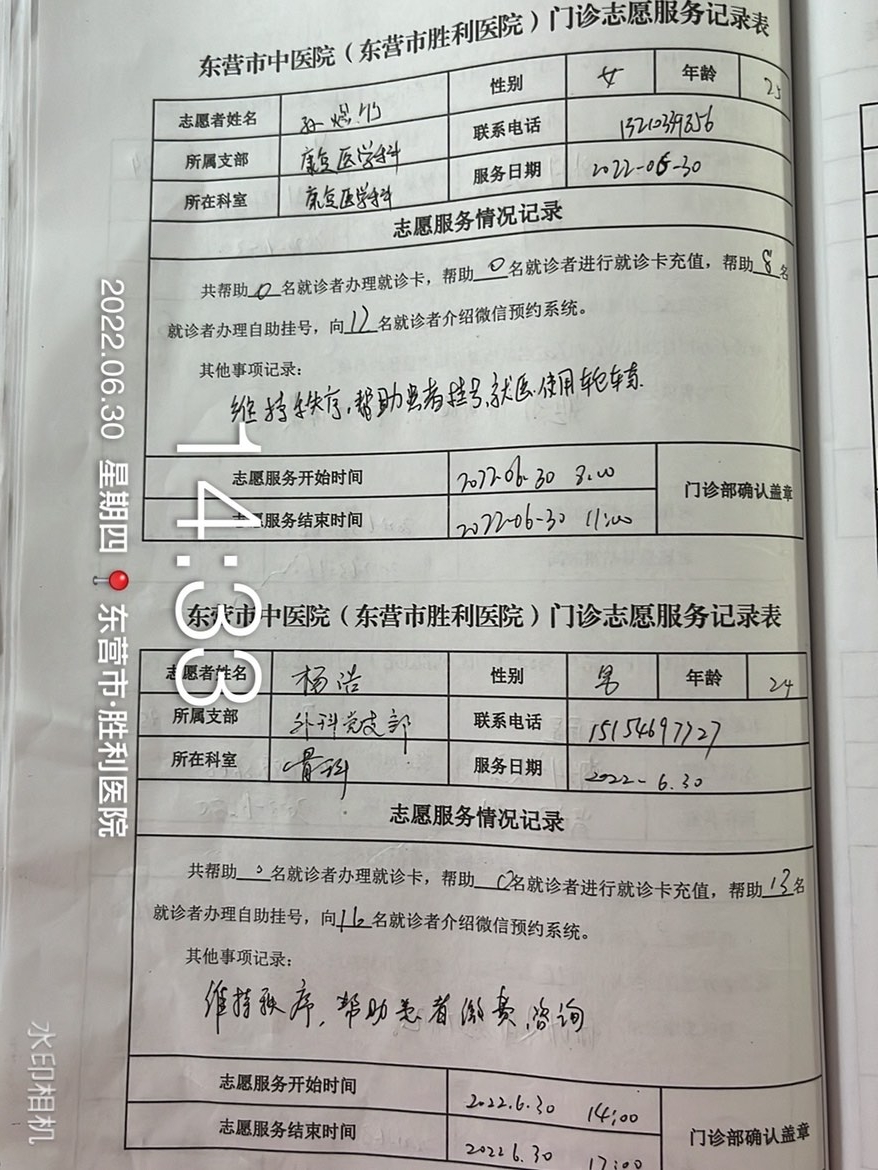 东营市中医院（东营市胜利医院）门诊志愿服务记录表
志愿者姓名 孙煜竹 性别 女 年龄 25
所属支部 康复医学科 联系电话
所在科室 康复医学科 服务日期 2022-06-30
志愿服务情况记录
共帮助0名就诊者办理就诊卡，帮助0名就诊者进行就诊卡充值，帮助8名
就诊者办理自助挂号，向12名就诊者介绍微信预约系统。
其他事项记录：
维持秩序，帮助患者挂号、就医、使用轮车等.
志愿服务开始时间 2022-06-30 8:00 门诊部确认盖章
志愿服务结束时间 2022-06-30 11:00
东营市中医院（东营市胜利医院）门诊志愿服务记录表
志愿者姓名 杨浩 性别 男 年龄 24
所属支部 外科党支部 联系电话 15154697727
所在科室 骨科 服务日期 2022-6.30
志愿服务情况记录
共帮助0名就诊者办理就诊卡，帮助0名就诊者进行就诊卡充值，帮助13名
就诊者办理自助挂号，向16名就诊者介绍微信预约系统。
其他事项记录：
维持秩序，帮助患者缴费，咨询
志愿服务开始时间 2022.6.30 14:00 门诊部确认盖章
志愿服务结束时间 2022 6.30 17:00
14:33
2022.06.30 星期四 东营市·胜利医院
水印相机